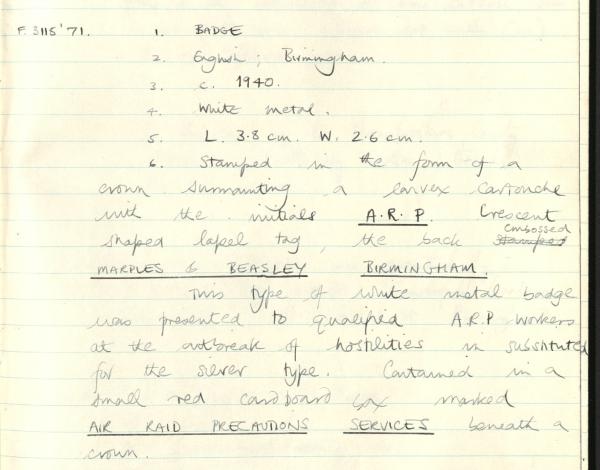 F. 3115'71. 1. BADGE
2. English ; Birmingham.
3. c. 1940.
4. White metal.
5. L. 3.8 cm. W. 2.6 cm.
6. Stamped in the form of a
crown surmounting a convex cartouche
with the initials A.R.P. Crescent
shaped lapel tag, the back stamped embossed
MARPLES & BEASLEY BIRMINGHAM.
This type of white metal badge
was presented to qualified A.R.P workers
at the outbreak of hostilities in substituted
for the silver type. Contained in a
small red cardboard box marked
AIR RAID PRECAUTIONS SERVICES beneath a
crown.